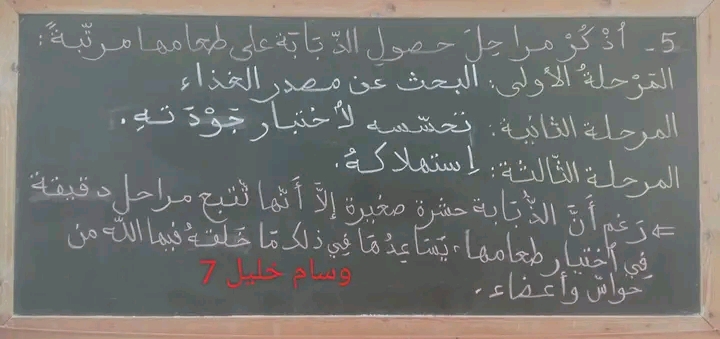 5- أُذْكُرْ مراحِلَ حصولِ الذّبَابَةِ على طعامها مرتّبةً:
المَرْحلةُ الأولى: البحث عن مصدر الغذاء
المرحلة الثانية: تحسّسه لاُختبار جَوْدَتهِ.
المرحلة الثّالثة: اِستهلاكهُ.
⇐ رَغم أَنَّ الذُّبَابة حشرة صغيرة إلاَّ أَنّها تَتبع مراحل دقيقة
فِي اُختيار طعامها، يَسَاعِدُهَا فِي ذلك مَا خَلقهُ فيها اللّه من
حَواسّ وأعضاء.
وسام خليل 7